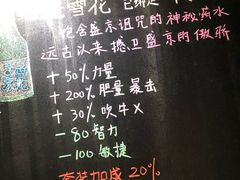 雪花
饱含盛京诅咒的神秘药水
远古以来 捍卫盛京肉傲骄
+50% 力量
+200% 肥量暴击
+30% 吹牛X
-80 智力
-100 敏捷
套装加成 20%